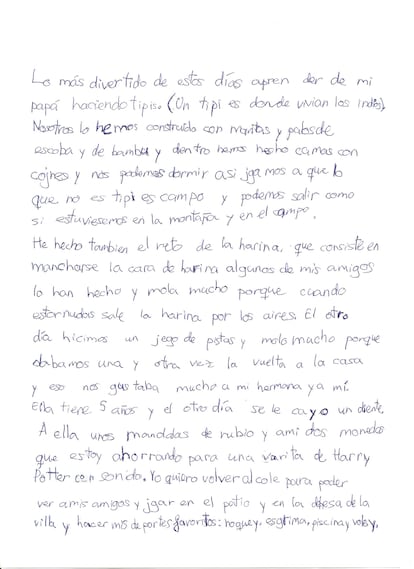 Lo más divertido de estos días apren der de mi
papá haciendo tipis. (Un tipi es donde vivian los indios)
Nosotros lo hemos construido con mantas y palos de
escoba y de bambu y dentro hemos hecho camas con
cojines y nos podemos dormir asi jgamos a que lo
que no es tipi es campo y podemos salir como
si estuviesemos en la montaña y en el campo.
He hecho tambien el reto de la harina, que consiste en
mancharse la cara de harina algunos de mis amigos
lo han hecho y mola mucho porque cuando
estornudas sale la harina por los aires. El otro
día hicimos un jego de pistas y molo mucho porque
dabamos una y otra vez la vuelta a la casa
y eso nos gustaba mucho a mi hermana y a mí.
Ella tiene 5 años y el otro día se le cayo un diente.
A ella unas de rubio y a mi dos monedas
que estoy ahorrando para una varita de Harry
Potter con sonido. Yo quiero volver al cole para poder
ver a mis amigos y jgar en el patio y en la de la
villa y hacer mis deportes favoritos: esgrima, piscina y voley.